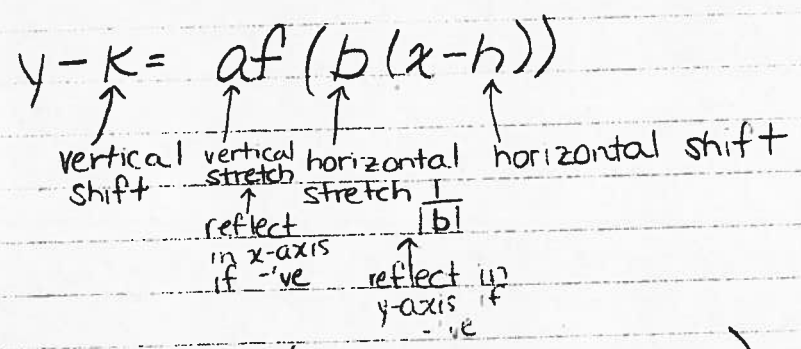 y-k= af(b(x-h))
vertical shift
vertical stretch
reflect in x-axis if -'ve
horizontal stretch 1/|b|
reflect in y-axis if -'ve
horizontal shift